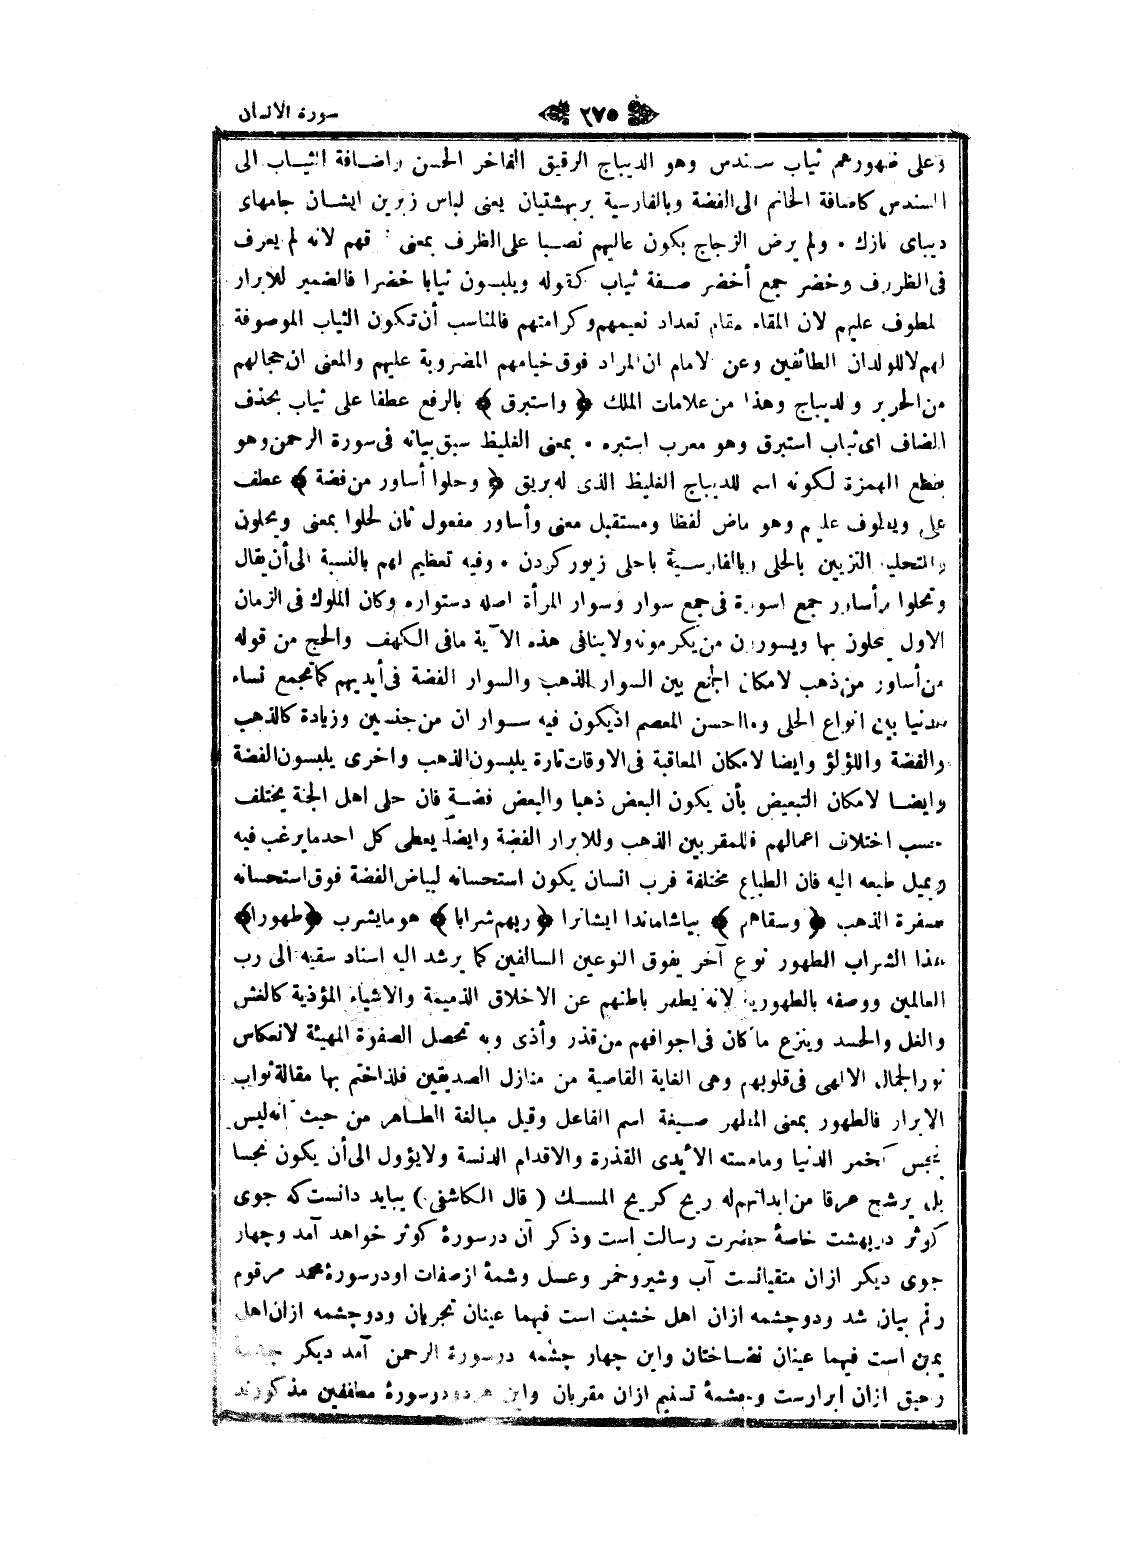 سورة الانسان ٢٧٥
وعلى ظهورهم ثياب سندس وهو الديباج الرقيق الفاخر الحسن واضافة الثياب الى
السندس كاضافة الخاتم الى الفضة وبالفارسية بربهشتيان يعنى لباس زبرين ايشان جامهاى
ديباى نازك . ولم يرض الزجاج بكون عاليهم نصبا على الظرف بمعنى فوقهم لانه لم يعرف
فى الظروف وخضر جمع أخضر صفة ثياب كقوله ويلبسون ثيابا خضرا فالضمير للابرار
المطوف عليهم لان المقام مقام تعداد نعيمهم وكرامتهم فالمناسب أن تكون الثياب الموصوفة
لهم لاللولدان الطائفين وعن الامام ان المراد فوق خيامهم المضروبة عليهم والمعنى ان حجالهم
من الحرير والديباج وهذا من علامات الملك ﴿ واستبرق ﴾ بالرفع عطفا على ثياب بحذف
المضاف اى ثياب استبرق وهو معرب استبره . بمعنى الغليظ سبق بيانه فى سورة الرحمن وهو
بقطع الهمزة لكونه اسم للديباج الغليظ الذى له بريق ﴿ وحلوا أساور من فضة ﴾ عطف
على ويطوف عليهم وهو ماض لفظا ومستقبل معنى وأساور مفعول ثان لحلوا بمعنى ويحلون
والتحلية التزيين بالحلى وبالفارسية باحلى زيور كردن . وفيه تعظيم لهم بالنسبة الى أن يقال
وتحلوا وأساور جمع اسورة فى جمع سوار وسوار المرأة اصله دستواره وكان الملوك فى الزمان
الاول يحلون بها ويسورون من يكرمونه ولاينافى هذه الآية مافى الكهف والحج من قوله
من أساور من ذهب لامكان الجمع بين السوار الذهب والسوار الفضة فى أيديهم كما تجمع نساء
الدنيا بين انواع الحلى وما احسن المعصم اذيكون فيه سوار ان من جنسين وزيادة كالذهب
والفضة واللؤلؤ وايضا لامكان المعاقبة فى الاوقات تارة يلبسون الذهب واخرى يلبسون الفضة
وايضا لامكان التبعيض بأن يكون البعض ذهبا والبعض فضة فان حلى اهل الجنة يختلف
حسب اختلاف اعمالهم فللمقربين الذهب وللابرار الفضة وايضا يعطى كل احد مايرغب فيه
ويميل طبعه اليه فان الطباع مختلفة فرب انسان يكون استحسانه لبياض الفضة فوق استحسانه
صفرة الذهب ﴿ وسقاهم ﴾ بياشاماندا ايشانرا ﴿ ربهم شرابا ﴾ هو مايشرب ﴿ طهورا ﴾
هذا الشراب الطهور نوع آخر يفوق النوعين السالفين كما يرشد اليه اسناد سقيه الى رب
العالمين ووصفه بالطهورية لانه يطهر باطنهم عن الاخلاق الذميمة والاشياء المؤذية كالغش
والغل والحسد وينزع ماكان فى اجوافهم من قذر وأذى وبه تحصل الصفوة المهيئة لانعكاس
نور الجمال الالهى فى قلوبهم وهى الغاية القاصية من منازل الصديقين فلذا ختم بها مقالة ثواب
الابرار فالطهور بمعنى المطهر صيغة اسم الفاعل وقيل مبالغة الطاهر من حيث انه ليس
بنجس كخمر الدنيا ومامسته الأيدى القذرة والاقدام الدنسة ولايؤول الى أن يكون نجسا
بل يرشح عرقا من ابدانهم له ريح كريح المسك ( قال الكاشفى ) ببايد دانست كه جوى
كوثر دربهشت خاصهٔ حضرت رسالت است وذكر آن درسورهٔ كوثر خواهد آمد وچهار
جوى ديكر ازان متقيانست آب وشير وخمر وعسل وشمهٔ ازصفات او درسورهٔ محمد مرقوم
رقم بيان شد ودوچشمه ازان اهل خشيت است فيهما عينان تجريان ودوچشمه ازان اهل
يمين است فيهما عينان نضاختان واين چهار چشمه درسورة الرحمن آمد ديكر چشمهٔ
رحيق ازان ابرارست وچشمهٔ تسنيم ازان مقربان واين هردو درسورهٔ مطففين مذكورند